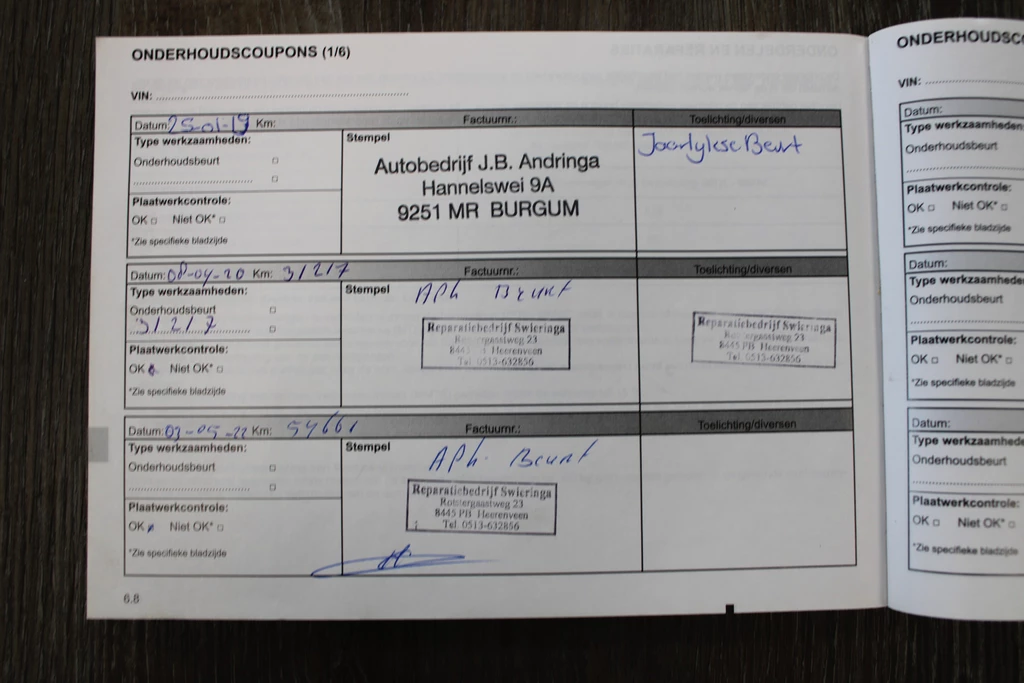 ONDERHOUDSCOUPONS (1/6)
VIN:
Datum: 25-01-19 Km: Factuurnr.: Toelichting/diversen
Type werkzaamheden:
Onderhoudsbeurt
Plaatwerkcontrole:
OK Niet OK*
*Zie specifieke bladzijde
Stempel
Autobedrijf J.B. Andringa
Hannelswei 9A
9251 MR BURGUM
Jaarlykse Beurt
Datum: 08-04-20 Km: 31217 Factuurnr.: Toelichting/diversen
Type werkzaamheden:
Onderhoudsbeurt
31217
Plaatwerkcontrole:
OK Niet OK*
*Zie specifieke bladzijde
Stempel
APk Beurt
Reparatiebedrijf Swieringa
23
8445 PB Heerenveen
Tel. 0513-632856
Reparatiebedrijf Swieringa
23
8445 PB Heerenveen
Tel. 0513-632856
Datum: 03-05-22 Km: 54661 Factuurnr.: Toelichting/diversen
Type werkzaamheden:
Onderhoudsbeurt
Plaatwerkcontrole:
OK Niet OK*
*Zie specifieke bladzijde
Stempel
APk. Beurt
Reparatiebedrijf Swieringa
Rotstergaastweg 23
8445 PB Heerenveen
Tel. 0513-632856
6.8
ONDERHOUDSC
VIN:
Datum:
Type werkzaamheden
Onderhoudsbeurt
Plaatwerkcontrole:
OK Niet OK*
*Zie specifieke bladzijde
Datum:
Type werkzaamhede
Onderhoudsbeurt
Plaatwerkcontrole:
OK Niet OK*
*Zie specifieke bladzijde
Datum:
Type werkzaamhede
Onderhoudsbeurt
Plaatwerkcontrole:
OK Niet OK*
*Zie specifieke bladzijde